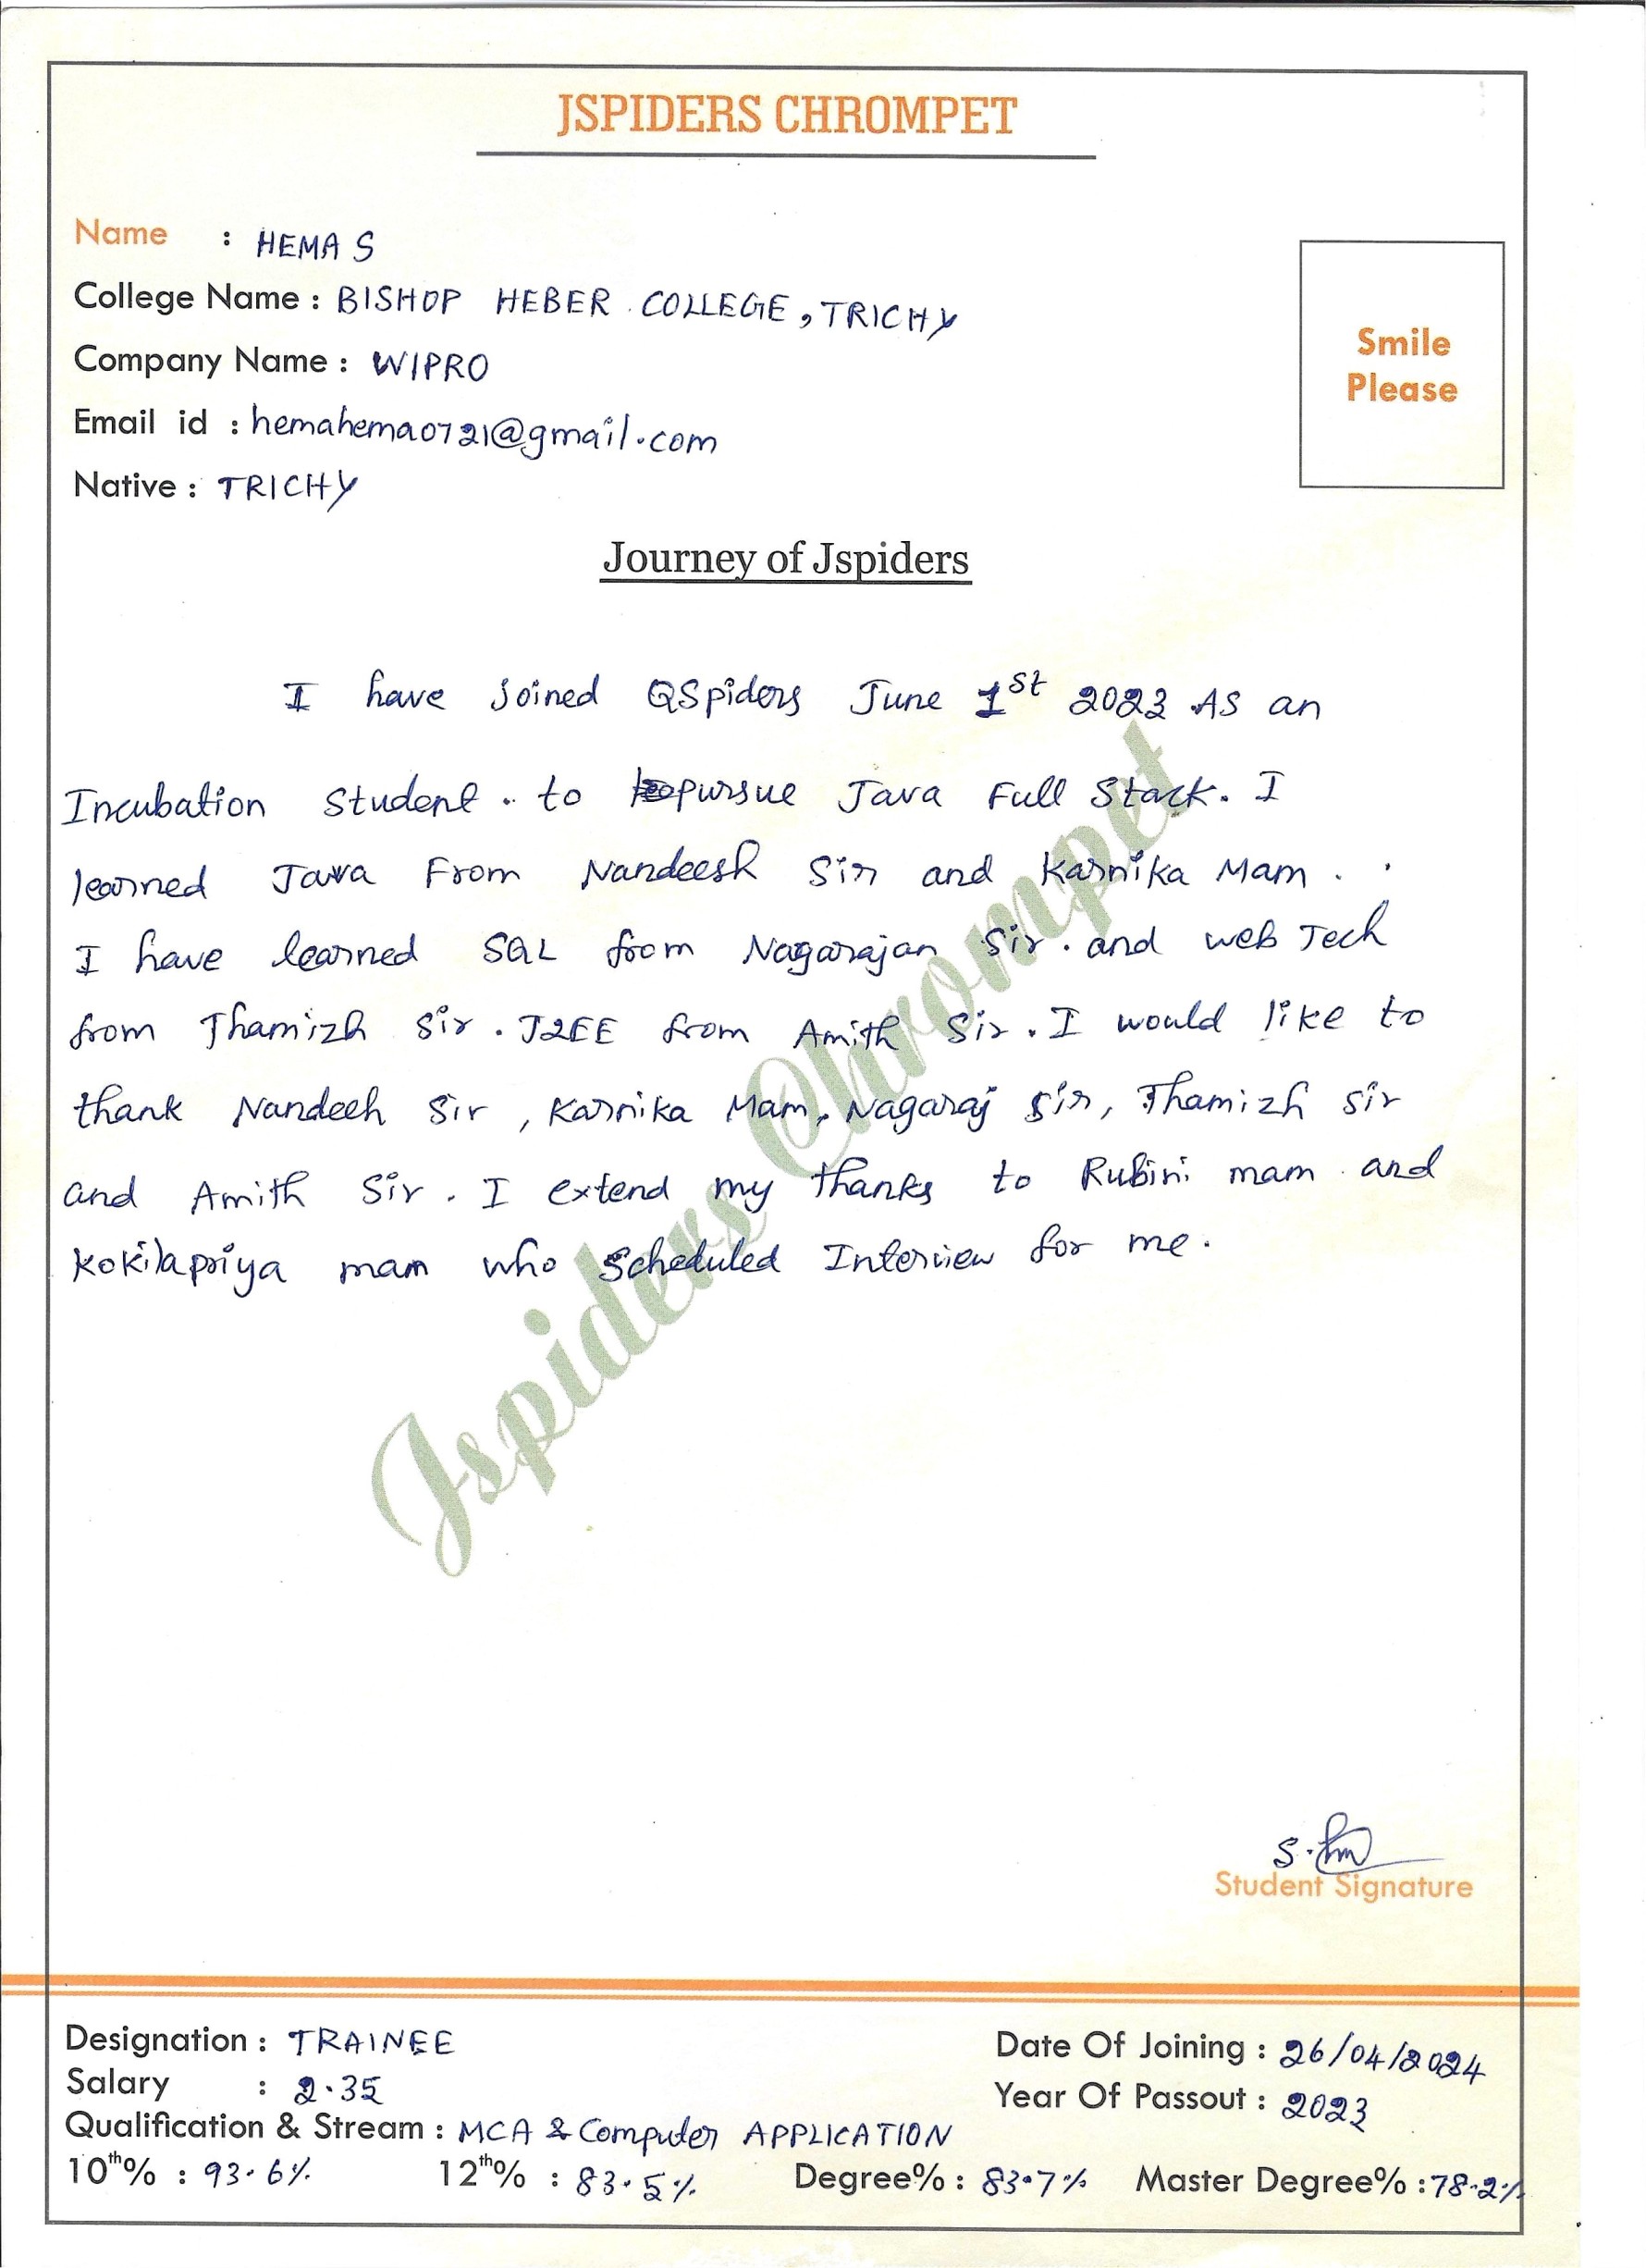 JSPIDERS CHROMPET
Name : HEMA S
College Name : BISHOP HEBER COLLEGE, TRICHY
Company Name : WIPRO
Email id : hemahema0721@gmail.com
Native : TRICHY
Smile
Please
Journey of Jspiders
I have joined QSpiders June 1st 2023 .AS an
Incubation Student . to pursue Java Full Stack. I
learned Java From Nandeesh Sir and Karnika Mam .
I have learned SQL from Nagarajan Sir. and web Tech
from Thamizh Sir . J2EE from Amith Sir. I would like to
thank Nandeeh Sir , Karnika Mam, Nagaraj Sir, Thamizh Sir
and Amith Sir . I extend my thanks to Rubini mam and
Kokilapriya mam who Scheduled Interview for me.
Jspiders Chrompet
Student Signature
Designation : TRAINEE
Date Of Joining : 26/04/2024
Salary : 2.35
Year Of Passout : 2023
Qualification & Stream : MCA & Computer APPLICATION
10th% : 93.6% 12th% : 83.5% Degree% : 83.7% Master Degree% : 78.2%